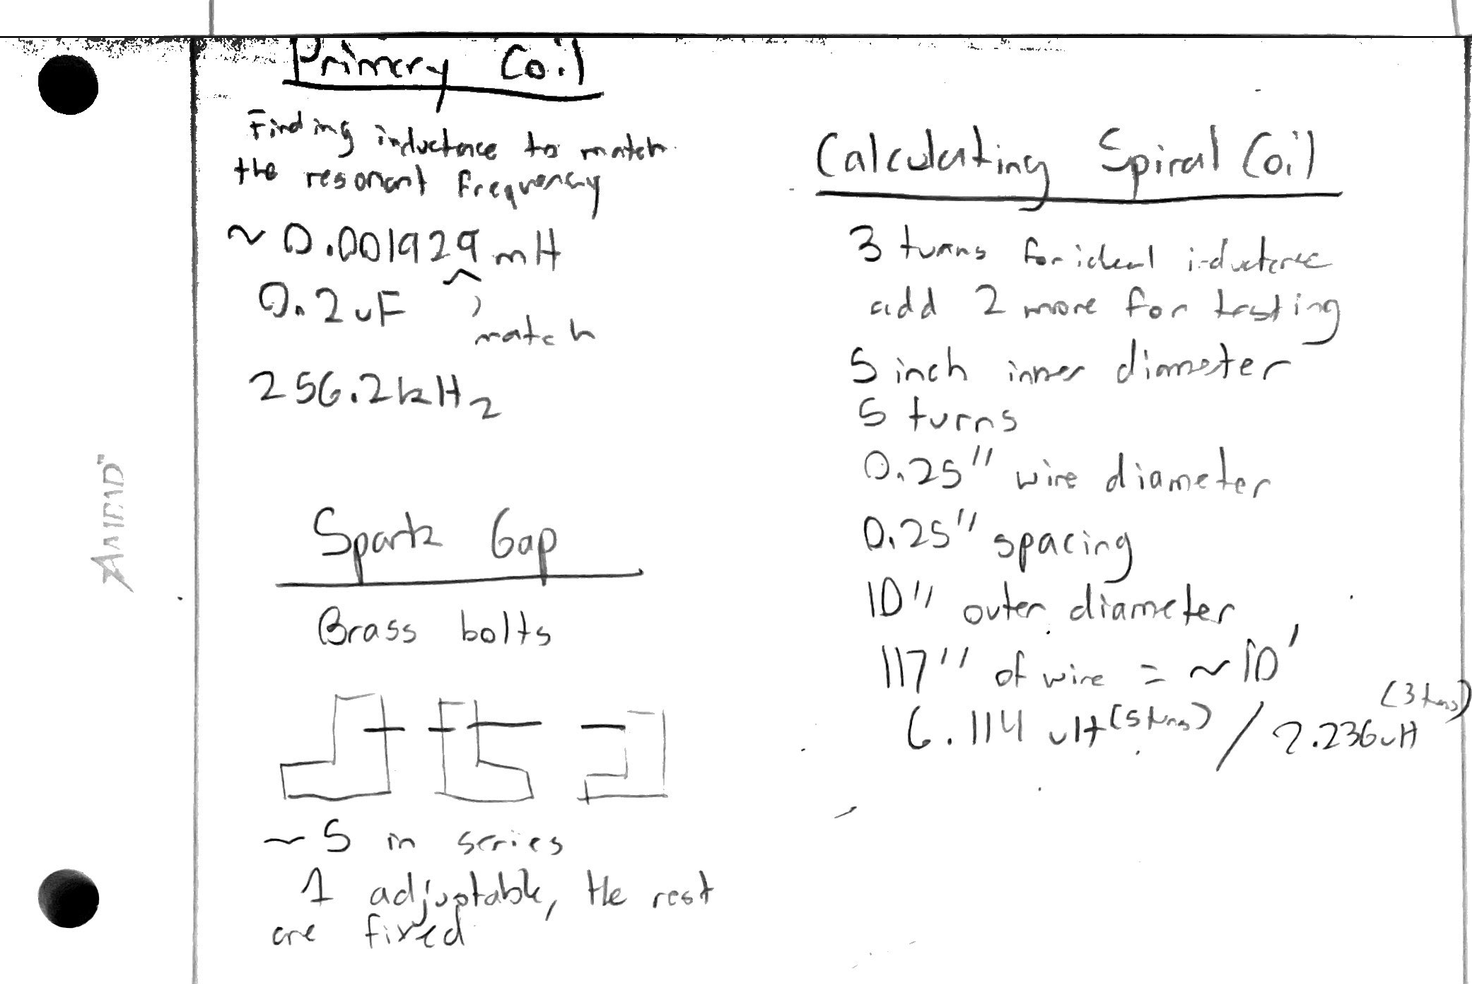 Primary Coil
Finding inductance to match
the resonant frequency
~ 0.001929 mH
0.2uF
match
256.2kHz
Spark Gap
Brass bolts
~ 5 in series
1 adjustable, the rest
are fixed
Calculating Spiral Coil
3 turns for ideal inductance
add 2 more for testing
5 inch inner diameter
5 turns
0.25" wire diameter
0.25" spacing
10" outer diameter
117" of wire = ~10'
6.114 uH (5 turns) / 2.236uH (3 turns)
AMEAD"